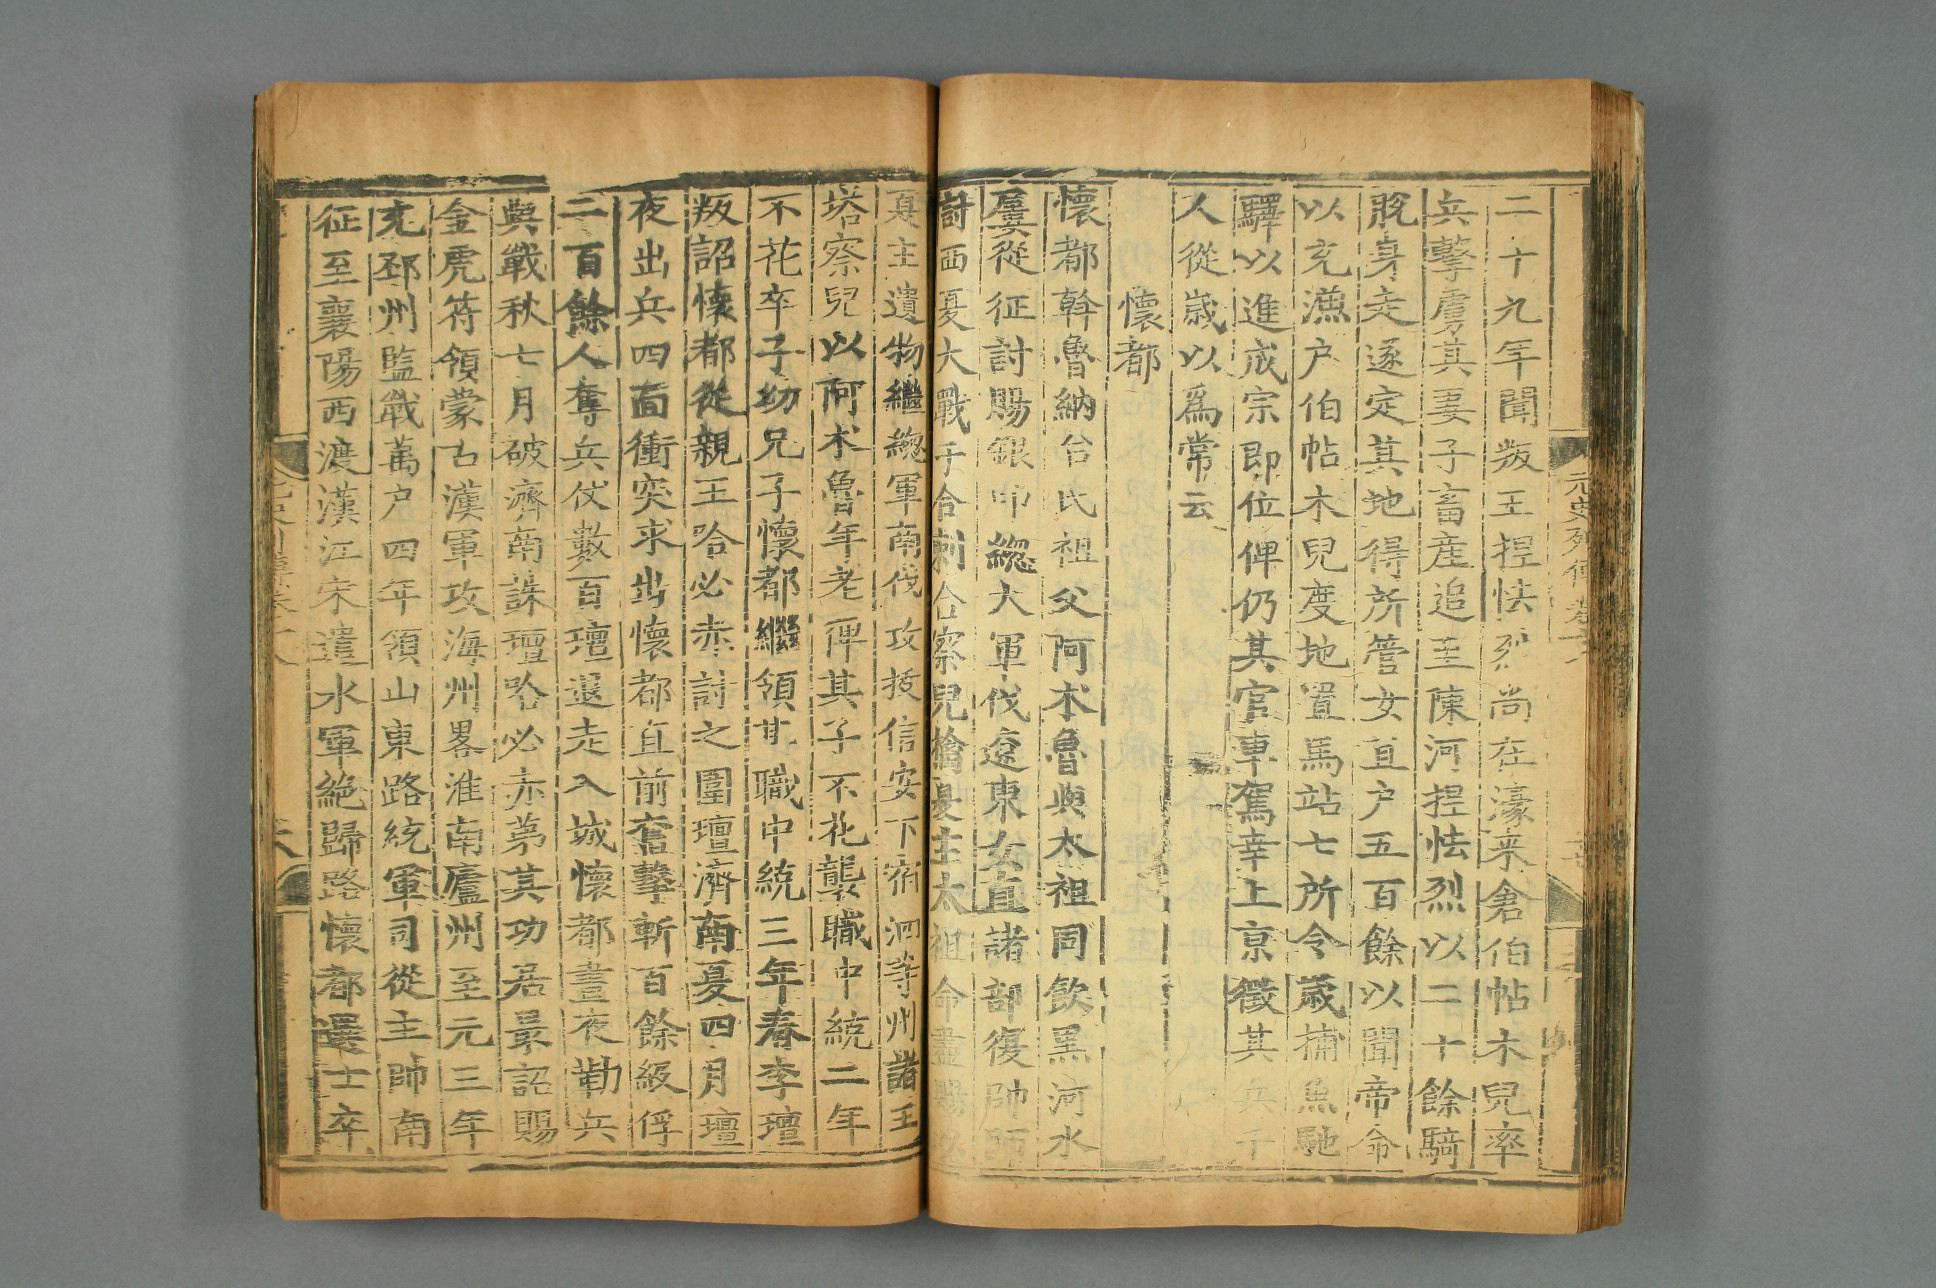 二十九年聞叛王捏怯烈尚在濠来倉伯帖木兒率
兵擊虜其妻子畜産追至陳河捏怯烈以二十餘騎
脫身走遂定其地得所管女直户五百餘以聞帝命
以充漁户伯帖木兒度地置馬站七所令歲捕魚馳
驛以進成宗即位俾仍其官車駕幸上京徵其兵千
人從歲以爲常云
懷都
懷都斡魯納台氏祖父阿朮魯與太祖同飲黑河水
屢從征討賜銀印總大軍伐遼東女直諸部復帥師
討西夏大戰于合剌合察兒擒夏主太祖命盡賜以
夏主遺物繼總軍南伐攻拔信安下宿泗等州諸王
塔察兒以阿朮魯年老俾其子不花襲職中統二年
不花卒子幼兄子懷都繼領其職中統三年春李璮
叛詔懷都從親王哈必赤討之圍璮濟南夏四月璮
夜出兵四面衝突求出懷都直前奮擊斬百餘級俘
二百餘人奪兵仗數百璮退走入城懷都晝夜勒兵
與戰秋七月破濟南誅璮哈必赤第其功居最詔賜
金虎符領蒙古漢軍攻海州畧淮南廬州至元三年
充邳州監戰萬户四年領山東路統軍司從主帥南
征至襄陽西渡漢江宋遣水軍絶歸路懷都選士卒